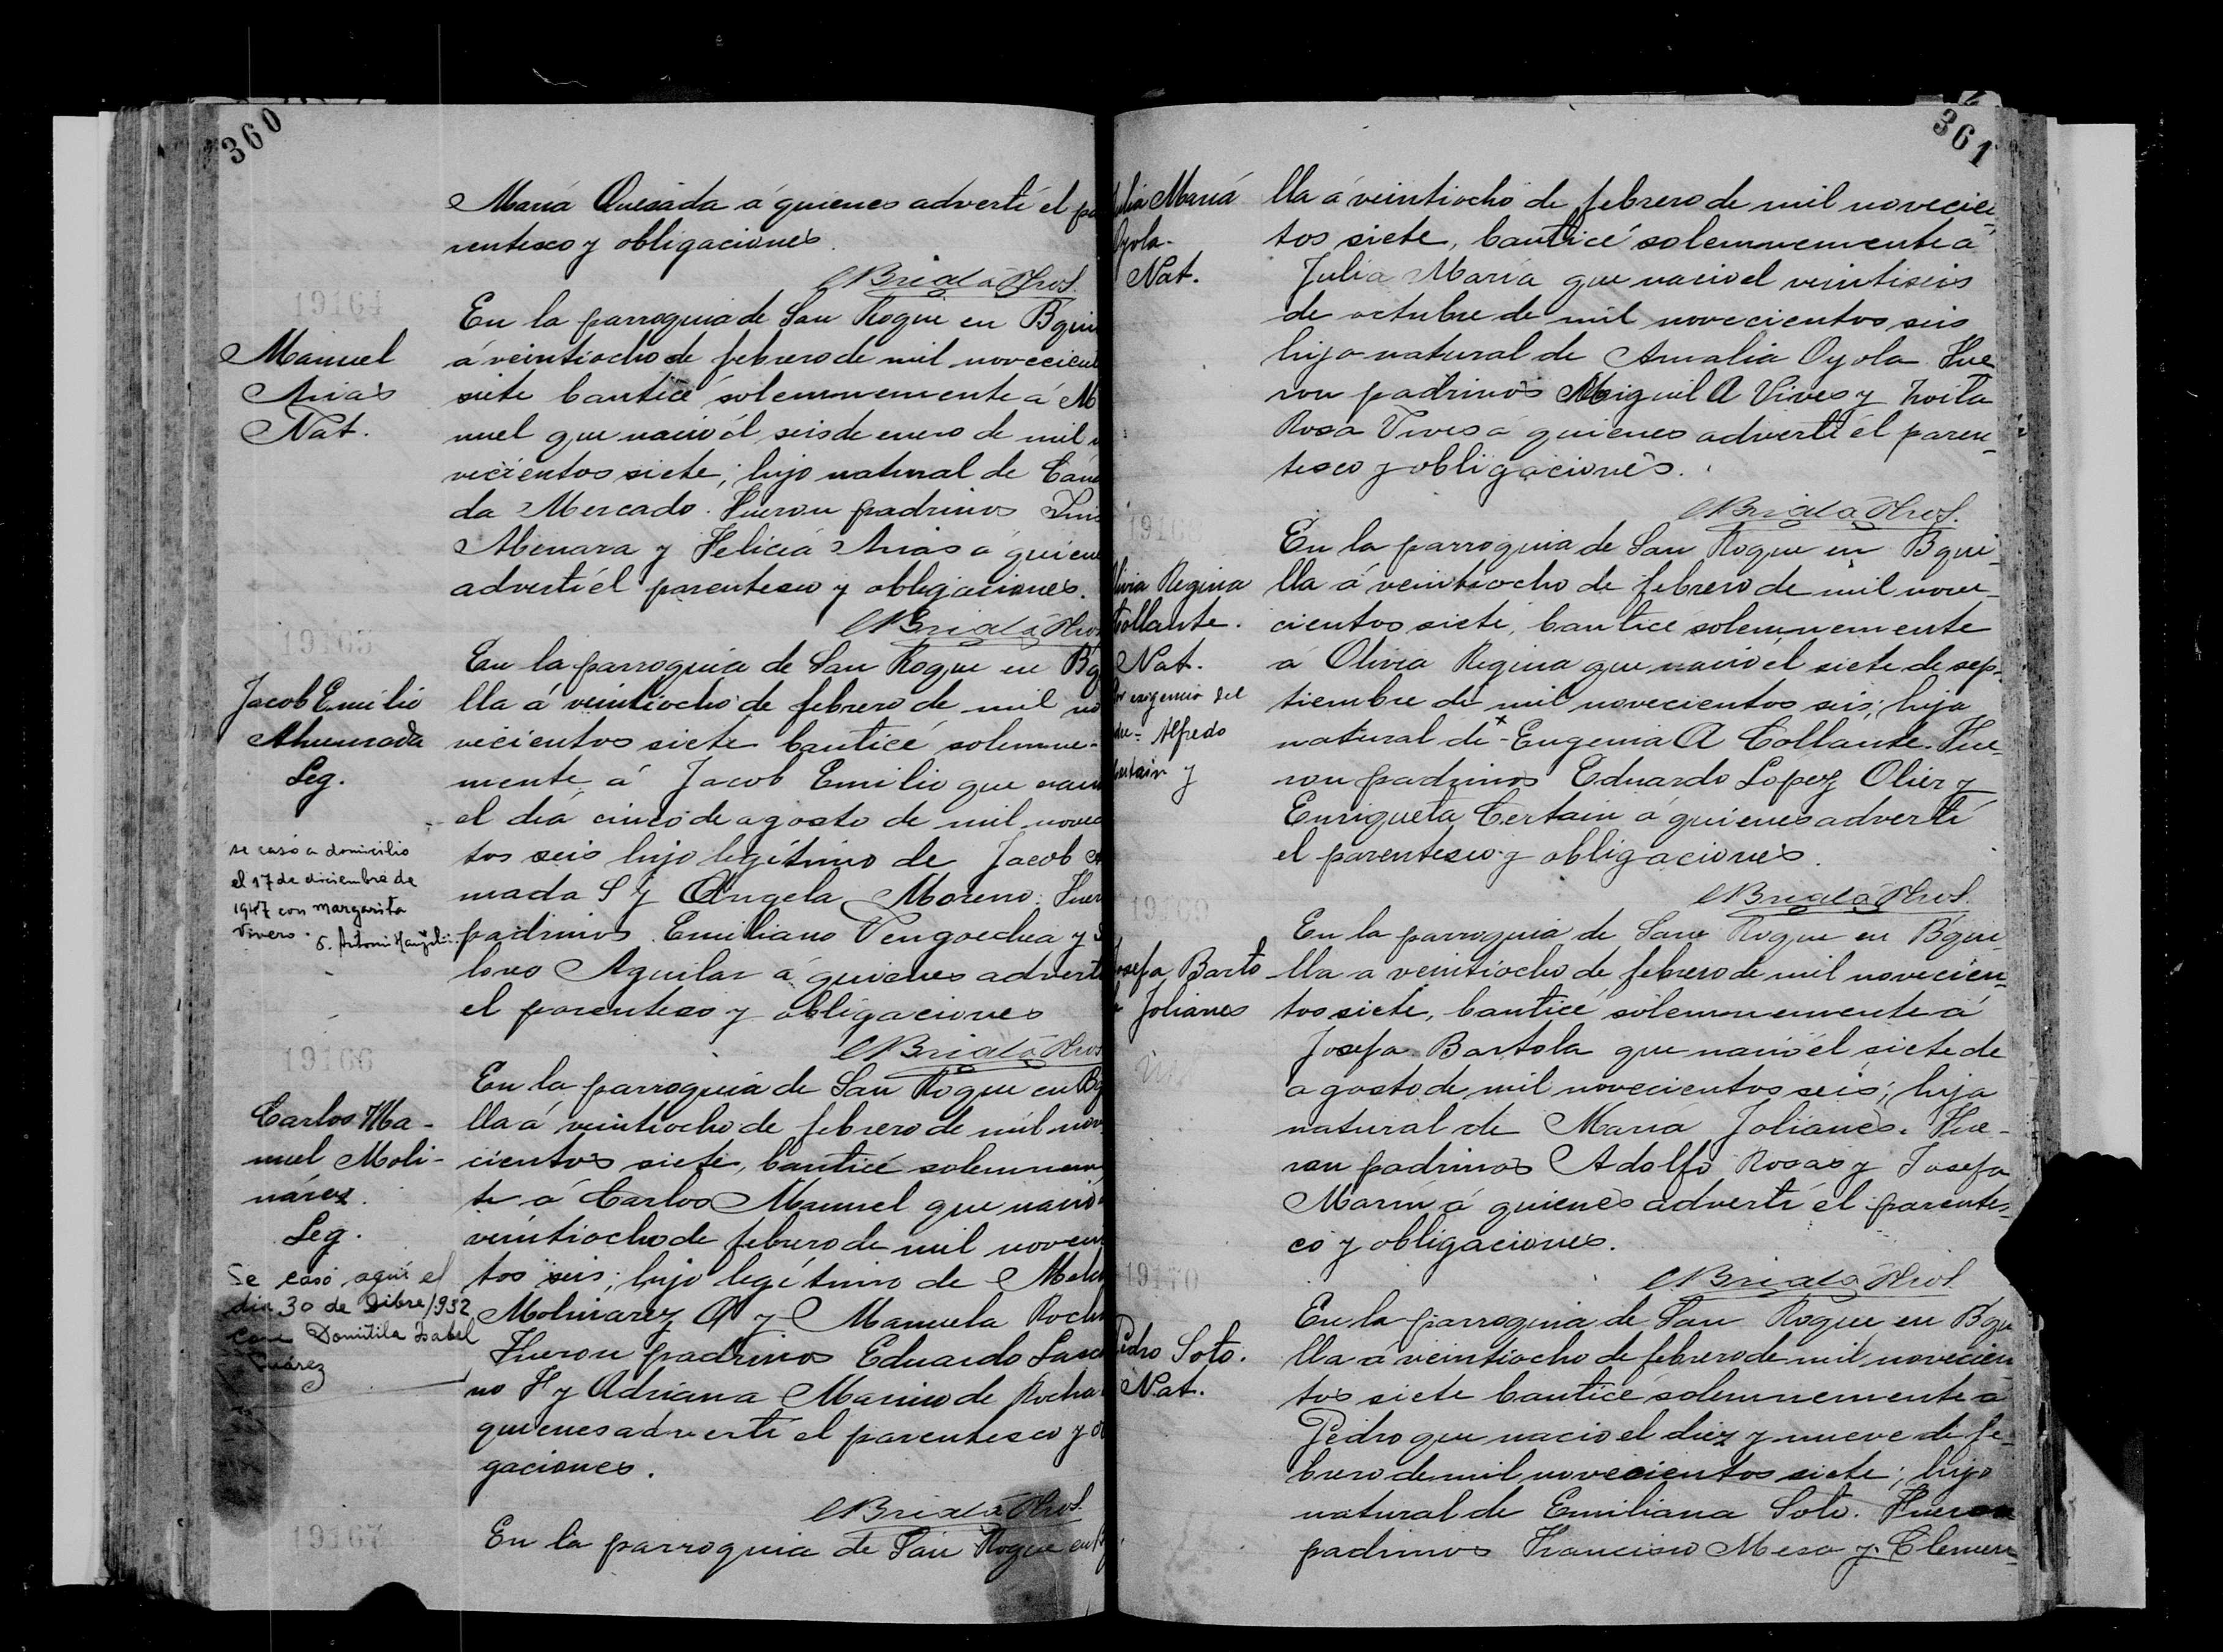 360
María Quesada á quienes advertí el pa
rentesco y obligaciones.
Briata Pbro.
19164
Manuel
Arias
Nat.
En la parroquia de San Roque en Bqui
á veintiocho de febrero de mil novecient
siete bauticé solemnemente á M
nuel que nació el seis de enero de mil n
vecientos siete; hijo natural de Can
da Mercado. Fueron padrinos
y Felicia Arias á quiene
advertí el parentesco y obligaciones.
Briata Pbro
19165
Jacob Emilio
Ahumada
Leg.
se casó a domicilio
el 17 de diciembre de
1947 con Margarita
Vivero.
En la parroquia de San Roque en Bq
lla á veintiocho de febrero de mil no
vecientos siete bauticé solemne-
mente á Jacob Emilio que naci
el día cinco de agosto de mil novec
tos seis hijo legítimo de Jacob A
mada S y Angela Moreno. Fuer
padrinos Emiliano Vengoechea y
Aguilar á quienes advert
el parentesco y obligaciones
Briata Pbro
19166
Carlos Ma-
nuel Moli-
nárez.
Leg.
Se casó aquí el
día 30 de Dibre/932
con Domitila Isabel
Suárez
En la parroquia de San Roque en Bq
lla á veintiocho de febrero de mil nov
cientos siete, bauticé solemnem
te á Carlos Manuel que nació
veintiocho de febrero de mil noveci
tos seis; hijo legítimo de
Molinarez A y Manuela Roch
Fueron padrinos Eduardo Lasc
no F y Adriana Marino de Rocha
quienes advertí el parentesco y o
gaciones.
Briata Pbro.
19167
En la parroquia de San Roque en B
361
ulia María
Oyola.
Nat.
lla á veintiocho de febrero de mil novecien
tos siete, bauticé solemnemente á
Julia María que nació el veintiseis
de octubre de mil novecientos seis
hija natural de Amalia Oyola. Fue
ron padrinos Miguel A Vives y Zoila
Rosa Vives á quienes advertí el paren-
tesco y obligaciones.
Briata Pbro.
19168
livia Regina
Collante.
Nat.
exigencia del
Alfredo
Certain y
En la parroquia de San Roque en Bqui-
lla á veintiocho de febrero de mil nove-
cientos siete, bauticé solemnemente
á Olivia Regina que nació el siete de sep-
tiembre de mil novecientos seis; hija
natural de + Eugenia A Collante. Fue-
ron padrinos Eduardo Lopez Olier y
Enriqueta Certain á quienes advertí
el parentesco y obligaciones.
Briata Pbro.
19169
osefa Barto
la Jolianes
En la parroquia de San Roque en Bqui
lla a veintiocho de febrero de mil novecien-
tos siete, bauticé solemnemente á
Josefa Bartola que nació el siete de
agosto de mil novecientos seis; hija
natural de María Jolianes. Fue-
ron padrinos Adolfo Rosas y Josefa
Marin á quienes advertí el parentes-
co y obligaciones.
Briata Pbro.
19170
Pedro Soto.
Nat.
En la parroquia de San Roque en Bqu
lla á veintiocho de febrero de mil novecien
tos siete bauticé solemnemente á
Pedro que nació el diez y nueve de fe-
brero de mil novecientos siete; hijo
natural de Emiliana Soto. Fueron
padrinos Francisco Mesa y Clemen-